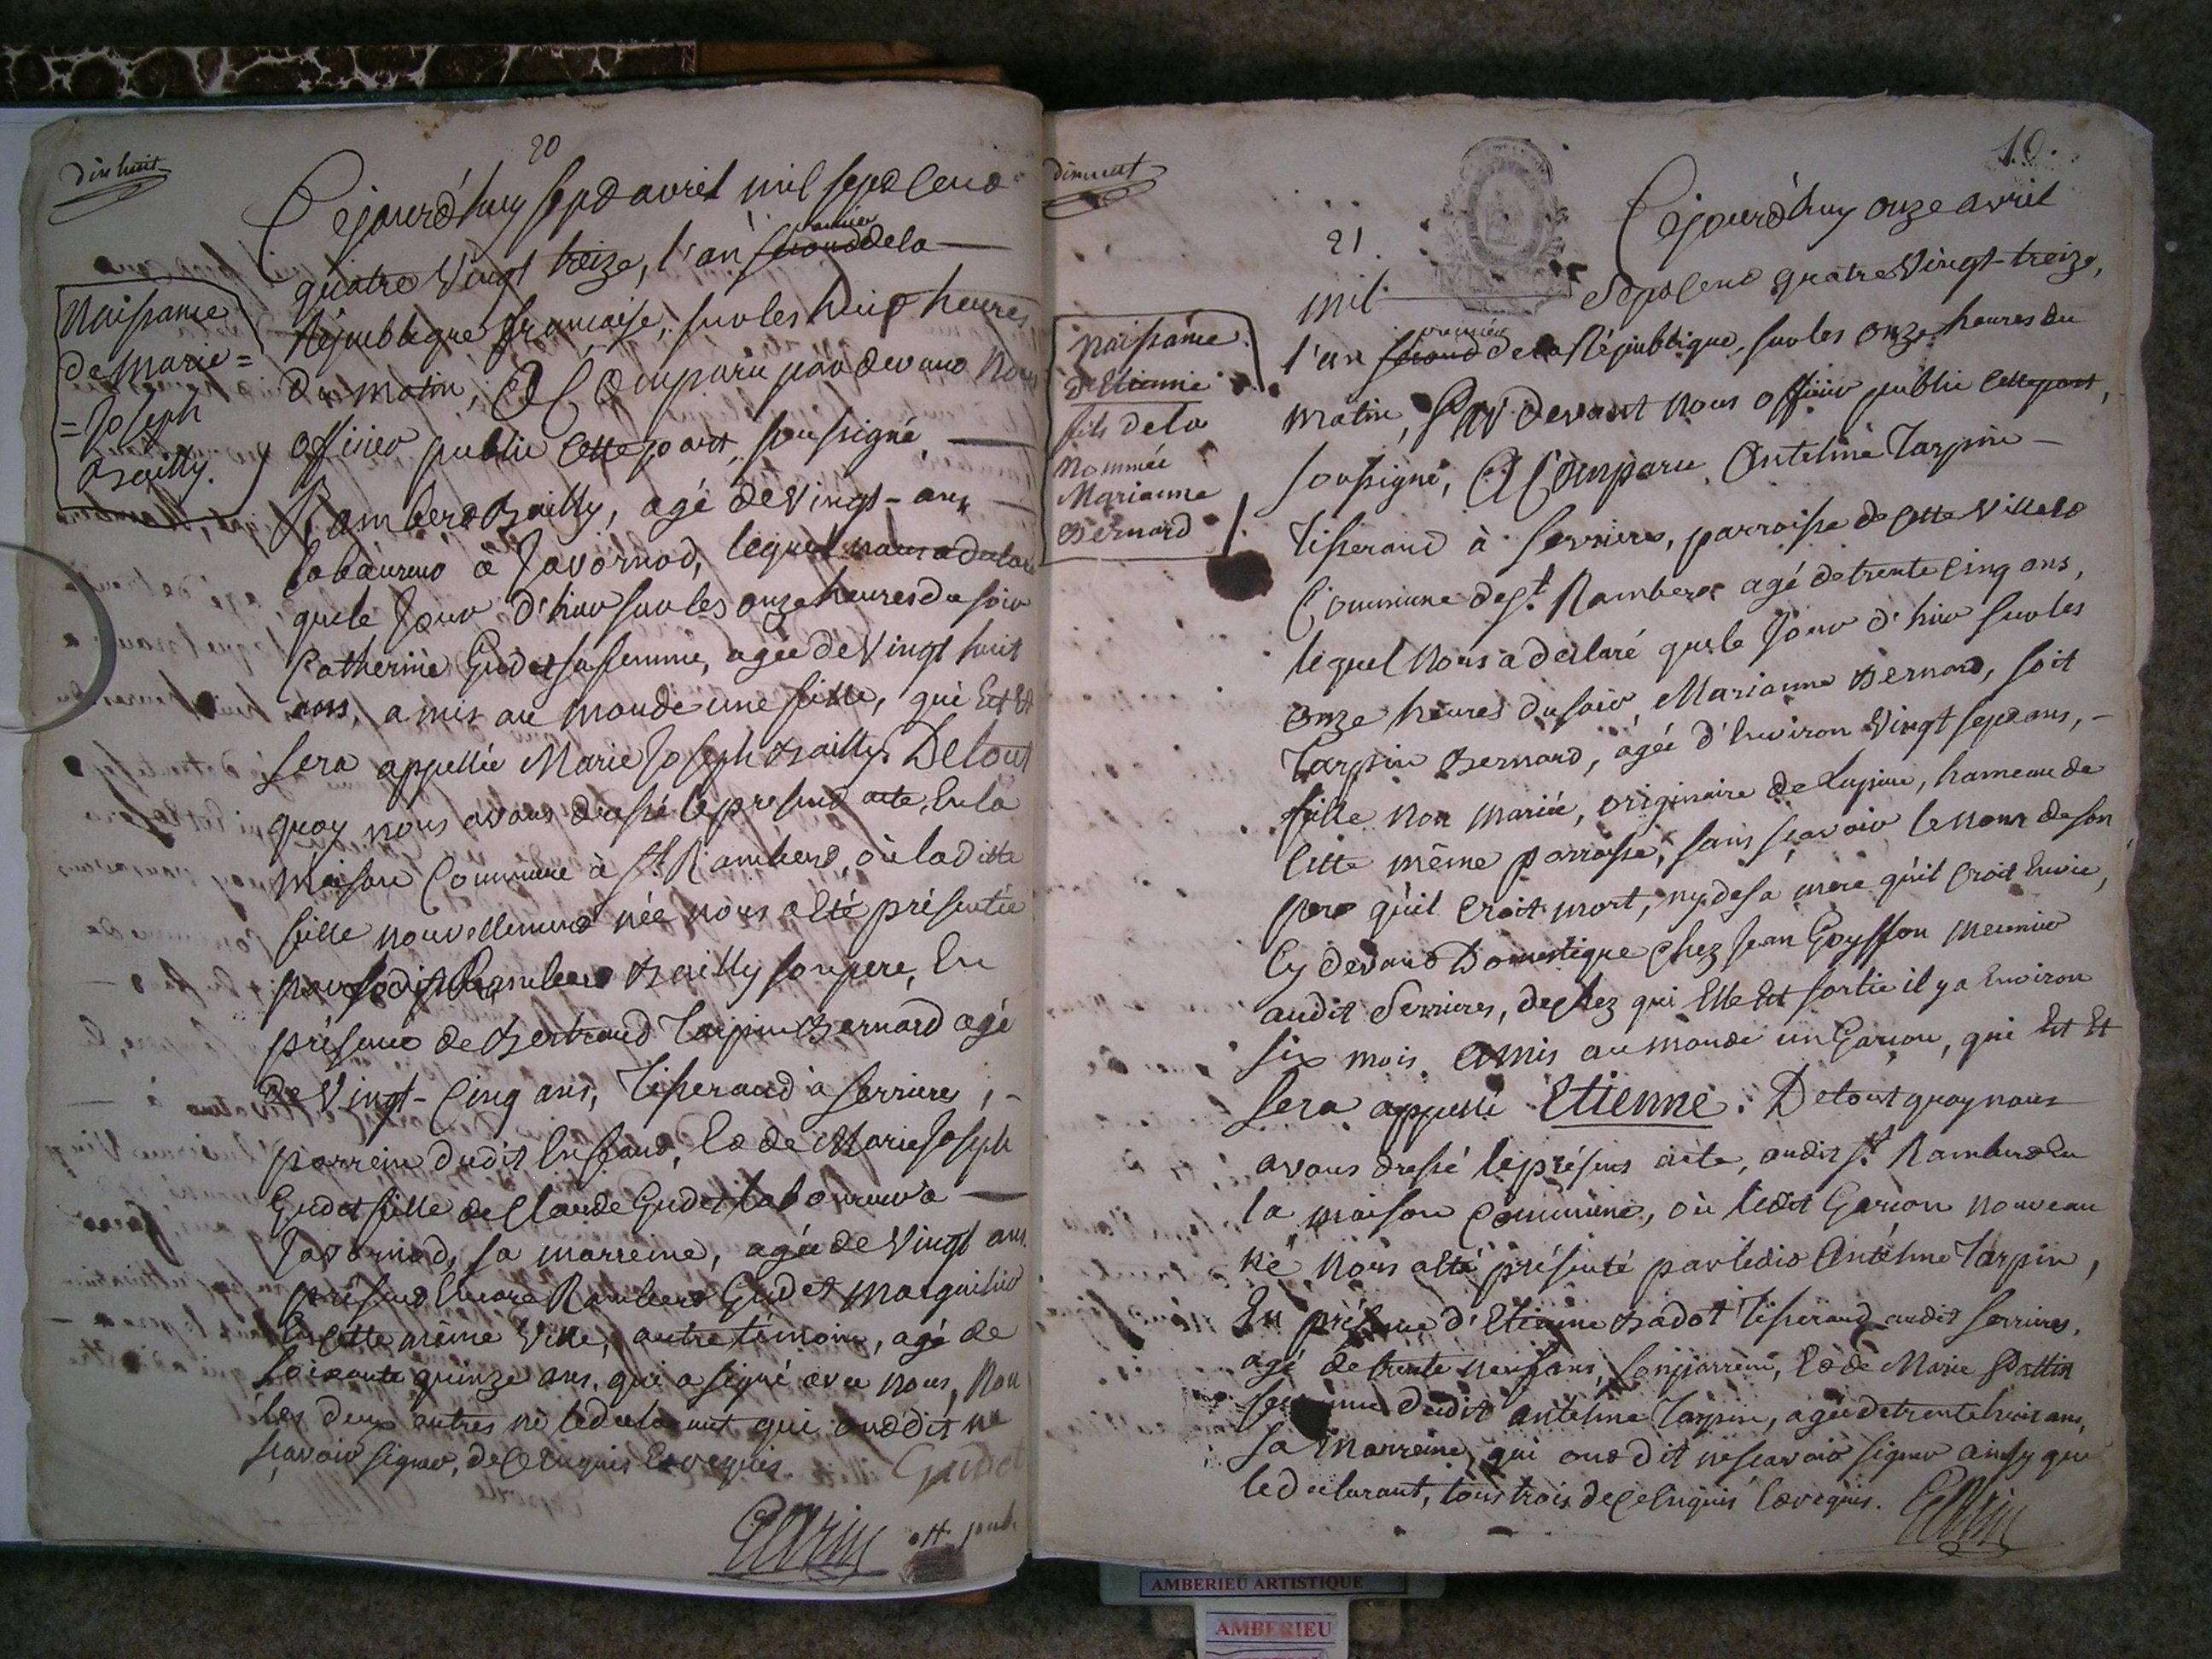 dix huit
20
Cejourd'huy sept avril mil sept cent
quatre Vingt treize, l'an second premier de la
République française, sur les huit heures
du matin, A Comparu par devant Nous
officier public cette part, soussigné,
Naissance
de Marie=
=Joseph
Bailly.
Rambert Bailly, agé de Vingt-ans
laboureur à Javornod, lequel nous a déclaré
que le Jour d'hier sur les onze heures du soir
Catherine Gudet sa femme, agée de Vingt huit
ans, a mis au monde une fille, qui Est Et
sera appellée Marie Joseph Bailly. De tout
quoy nous avons dressé le present acte, En la
Maison Commune à St. Rambert, où la ditte
fille nouvellement née nous a été présentée
par ledit Rambert Bailly son pere, En
présence de Bertrand Tarpin Bernard agé
de Vingt-Cinq ans, Tisserand à Serrieres,
parrein dudit Enfant, Et de Marie Joseph
Gudet fille de Claude Gudet laboureur à
Javornod, sa marreine, agée de Vingt ans.
présent Encore Rambert Gudet marguilier
En cette même Ville, autre témoin, agé de
Soixante quinze ans, qui a signé avec nous, Non
les deux autres ni le déclarant qui ont dit ne
sçavoir signer, de Ce Enquis Et requis. Gudet
off. pub.
dixneuf
10.
21.
Cejourd'huy onze avril
mil Sept Cent quatre Vingt-treize,
l'an second premier de la République, sur les onze heures du
matin, Par devant nous officier public cette part,
Naissance
d'Etienne
fils de la
nommée
Marianne
Bernard
soussigné, A Comparu Antelme Tarpin
Tisserand à Serrieres, parroisse de cette Ville Et
Commune de St. Rambert agé de trente Cinq ans,
lequel Nous a déclaré que le Jour d'hier sur les
onze heures du soir Marianne Bernard, soit
Tarpin Bernard, agée d'Environ Vingt sept ans,
fille non mariée, originaire de Lupieu, hameau de
Cette même parroisse, sans sçavoir le nom de son
pere qu'il Croit mort, ny de sa mere qu'il Croit En vie,
Cy devant Domestique chez Jean Goyffon meunier
audit Serrieres, de chez qui Elle Est sortie il y a Environ
six mois. a mis au monde un Garçon, qui Est Et
sera appellé Etienne. De tout quoy nous
avons dressé le présent acte, audit St. Rambert En
la maison Commune, où ledit Garçon nouveau
né nous a été présenté par ledit Antelme Tarpin,
En présence d'Etienne Badot Tisserand audit Serrieres,
agé de trente neuf ans, son parrein, Et de Marie Pattin
femme dudit Antelme Tarpin, agée de trente huit ans,
sa Marreine, qui ont dit ne sçavoir signer ainsy que
le déclarant, tous trois de Ce Enquis Et requis.
AMBERIEU ARTISTIQUE
AMBERIEU